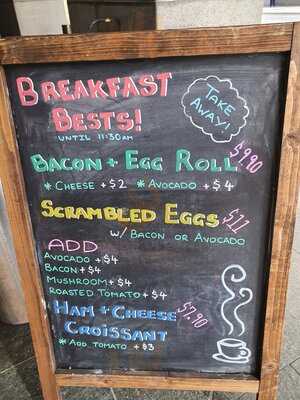 BREAKFAST
BESTS!
UNTIL 11:30AM
TAKE
AWAY!
BACON + EGG ROLL $9.90
* CHEESE + $2 * AVOCADO + $4
SCRAMBLED EGGS $11
W/ BACON OR AVOCADO
ADD
AVOCADO + $4
BACON + $4
MUSHROOM + $4
ROASTED TOMATO + $4
HAM + CHEESE $7.90
CROISSANT
* ADD TOMATO + $3